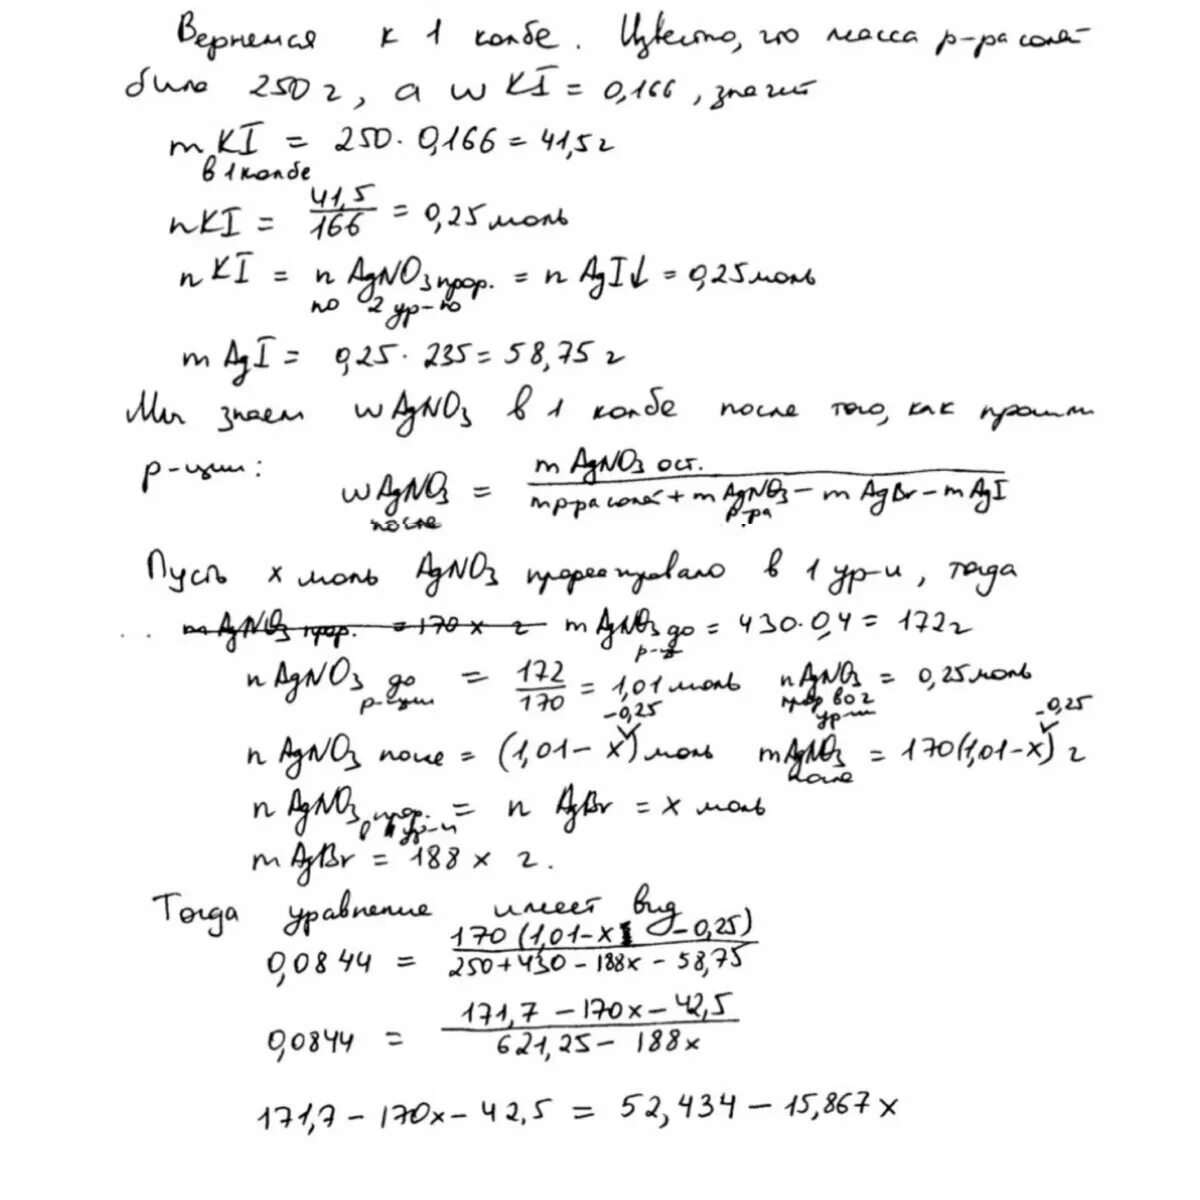 Вернемся к 1 колбе. Известно, что масса р-ра солей
была 250 г, а w KI = 0,166, значит
m KI = 250 · 0,166 = 41,5 г
в 1 колбе
n KI = 41,5 / 166 = 0,25 моль
n KI = n AgNO3 прор. = n AgI↓ = 0,25 моль
по 2 ур-ю
m AgI = 0,25 · 235 = 58,75 г
Мы знаем w AgNO3 в 1 колбе после того, как прошли
р-ции:
w AgNO3 после = m AgNO3 ост. / m р-ра солей + m AgNO3 р-ра – m AgBr – m AgI
Пусть x моль AgNO3 прореагировало в 1 ур-и, тогда
m AgNO3 прор. = 170 x г m AgNO3 до р-и = 430 · 0,4 = 172 г
n AgNO3 до р-ции = 172 / 170 = 1,01 моль n AgNO3 прор во 2 ур-и = 0,25 моль
n AgNO3 после = (1,01 – x – 0,25) моль m AgNO3 после = 170 (1,01 – x – 0,25) г
n AgNO3 прор. в 1 ур-и = n AgBr = x моль
m AgBr = 188 x г.
Тогда уравнение имеет вид
0,0844 = 170 (1,01 – x – 0,25) / 250 + 430 – 188x – 58,75
0,0844 = 171,7 – 170x – 42,5 / 621,25 – 188x
171,7 – 170x – 42,5 = 52,434 – 15,867x